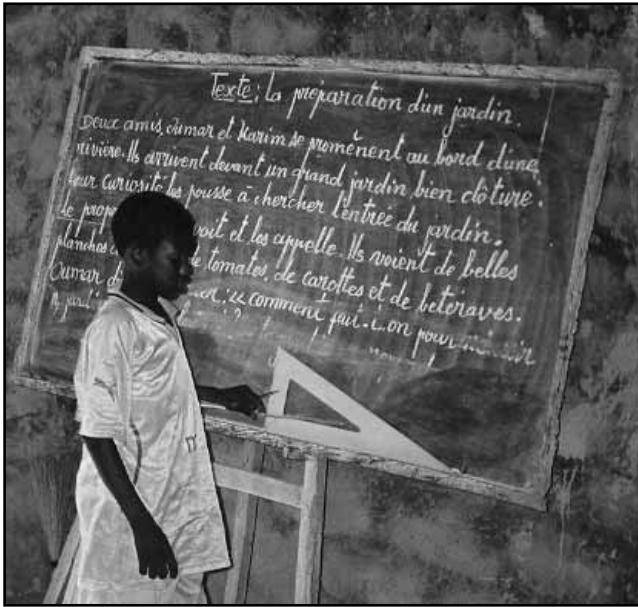 Texte: La préparation d'un jardin.
Deux amis, Oumar et Karim se promènent au bord d'une
rivière. Ils arrivent devant un grand jardin bien clôturé.
Leur curiosité les pousse à chercher l'entrée du jardin.
Le prop voit et les appelle. Ils voient de belles
planches de tomates, de carottes et de beteraves.
Oumar d : « comment fait-on pour